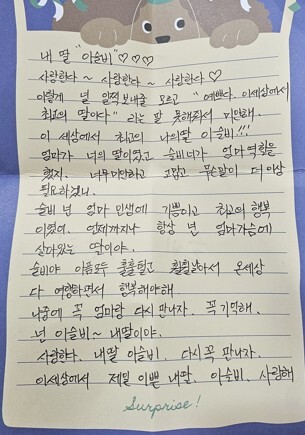 내 딸 "아슬비"♡♡♡
사랑한다~ 사랑한다~ 사랑한다♡
이렇게 널 일찍 보내줄 모르고 "예쁘다. 이세상에서
최고의 딸이다" 라는 말 못해줘서 미안해.
이 세상에서 최고의 나의딸 아슬비!!!
엄마가 너의 딸이였고 슬비너가 엄마 역할을
했지. 너무미안하고 고맙고 무슨말이 더 이상
필요하겠니.
슬비 넌 엄마 인생에 기쁨이고 최고의 행복
이였어. 언제까지나 항상 넌 엄마가슴에
살아있는 딸이야.
슬비야 아픔모두 훌훌털고 훨훨날아서 온세상
다 여행하면서 행복해야해
나중에 꼭 엄마랑 다시만나자. 꼭기억해.
넌 아슬비~ 내딸이야.
사랑한다. 내딸 아슬비. 다시꼭 만나자.
이세상에서 제일 이쁜 내딸. 아슬비. 사랑해
Surprise!